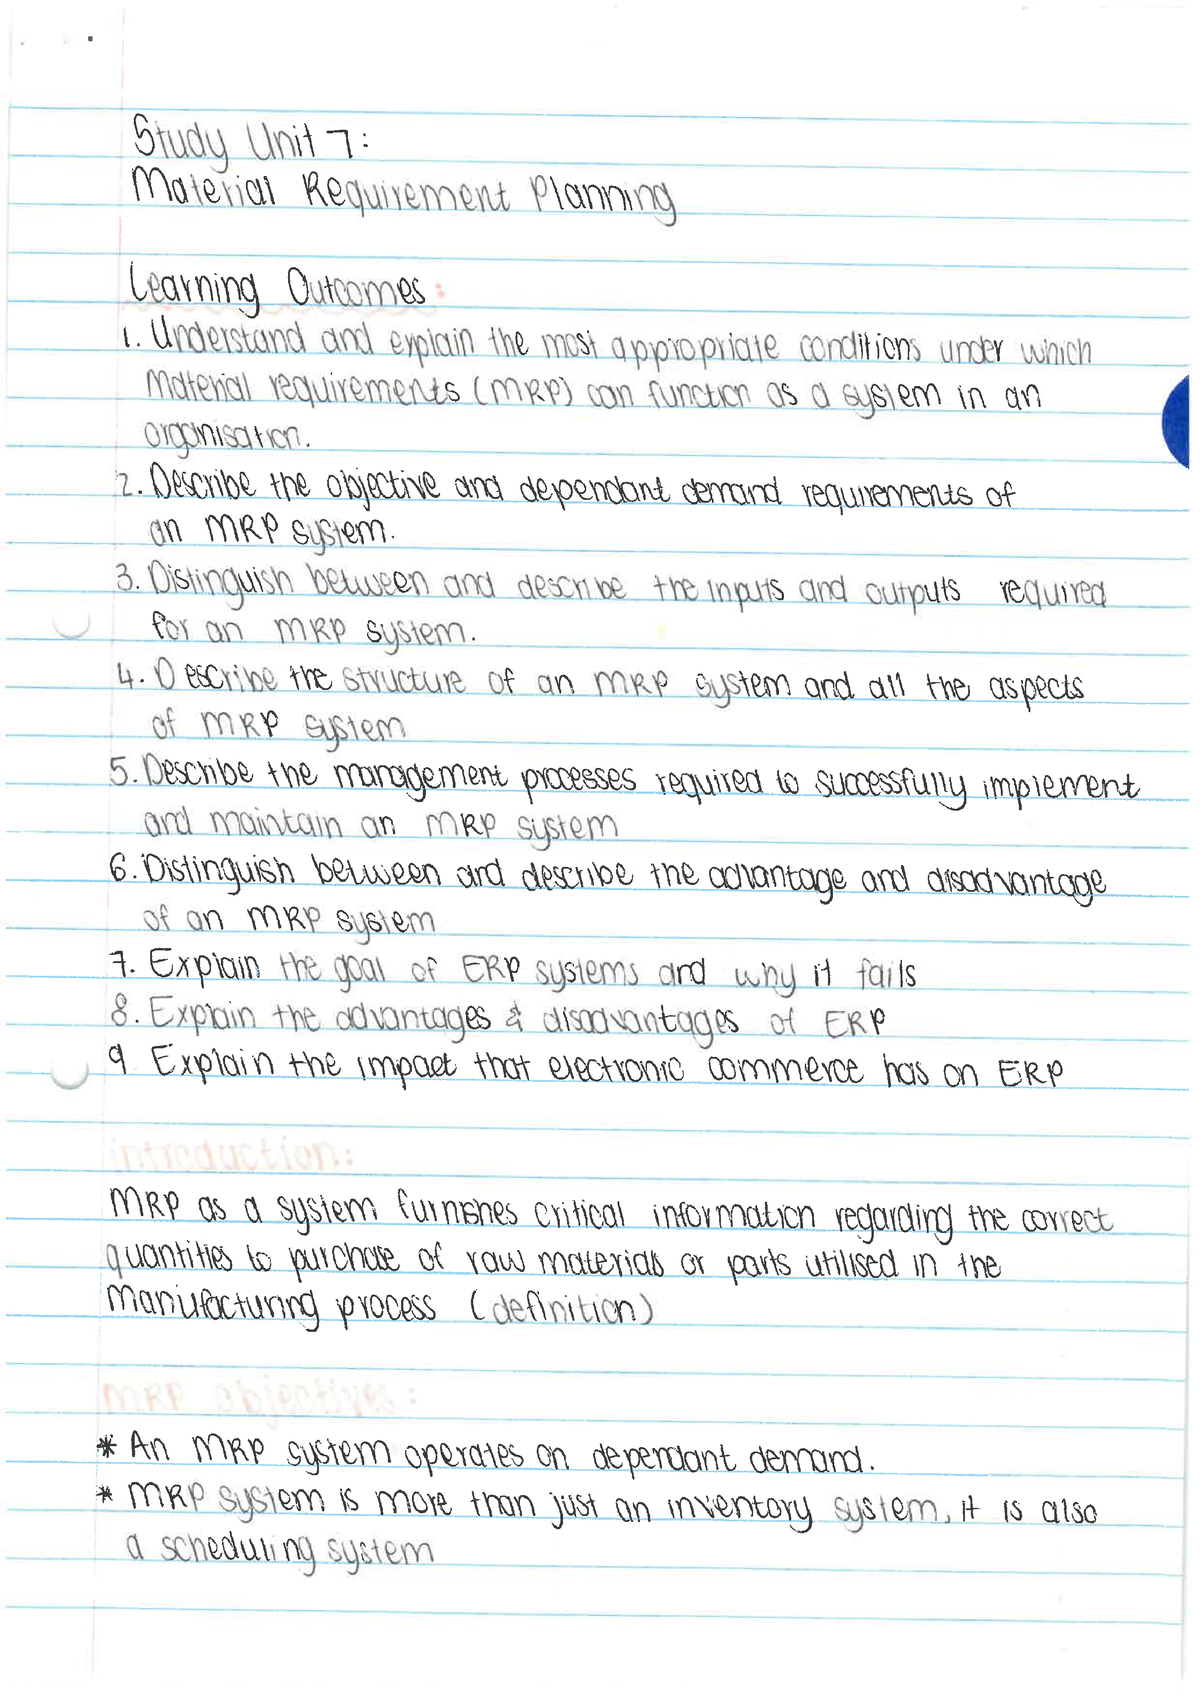 Study Unit 7:
Material Requirement Planning
Learning Outcomes:
1. Understand and explain the most appropriate conditions under which
Material requirements (MRP) can function as a system in an
organisation.
2. Describe the objective and dependant demand requirements of
an MRP system.
3. Distinguish between and describe the inputs and outputs required
for an MRP system.
4. Describe the structure of an MRP system and all the aspects
of MRP system
5. Describe the management processes required to successfully implement
and maintain an MRP system
6. Distinguish between and describe the advantage and disadvantage
of an MRP system
7. Explain the goal of ERP systems and why it fails
8. Explain the advantages & disadvantages of ERP
9 Explain the impact that electronic commerce has on ERP
introduction:
MRP as a system furnishes critical information regarding the correct
quantities to purchase of raw materials or parts utilised in the
manufacturing process (definition)
MRP objectives:
* An MRP system operates on dependant demand.
* MRP system is more than just an inventory system, it is also
a scheduling system